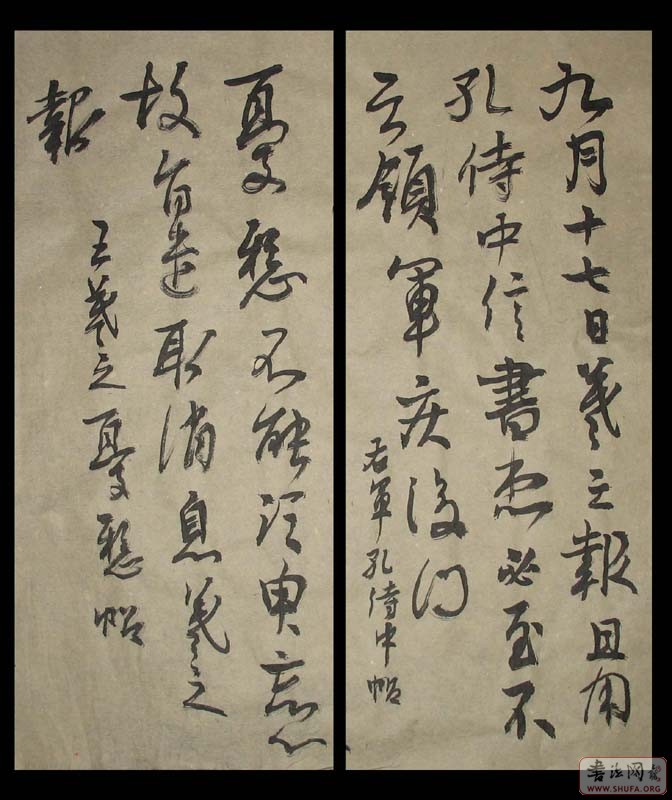 九月十七日羲之報且因
孔侍中信書想必至不
知領軍疾後問
右軍孔侍中帖
憂懸不能須臾忘心
故旨遣取消息羲之
報
王羲之憂懸帖
书法网
WWW.SHUFA.ORG